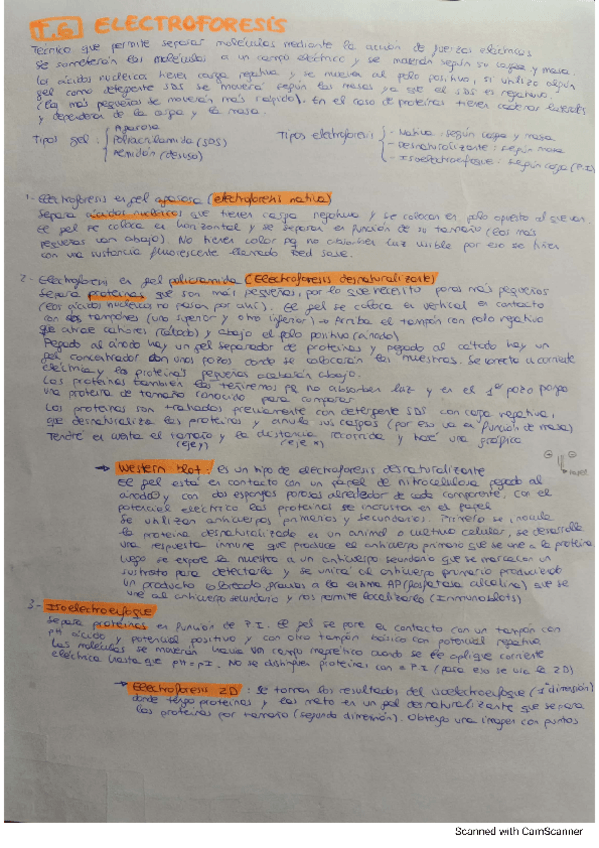 T.6 ELECTROFORESIS
Técnica que permite separar moléculas mediante la acción de fuerzas eléctricas
Se someterán las moléculas a un campo eléctrico y se moverán según su carga y masa.
Los ácidos nucleicos tienen carga negativa y se mueven al polo positivo, si utilizo algún
gel como detergente SDS se moverá según las masas ya que el SDS es negativo
(las más pequeñas se moverán más rápido). En el caso de proteínas tienen cadenas laterales
y dependerá de la carga y la masa.
Tipos gel: { Agarosa
Poliacrilamida (SDS)
Almidón (desuso)
Tipos electroforesis { - Nativa: según carga y masa
- Desnaturalizante: según masa
- Isoelectroenfoque: según carga (P.I)
1- Electroforesis en gel agarosa (electroforesis nativa)
Separa ácidos nucleicos que tienen carga negativa y se colocan en polo opuesto al que van.
El gel se coloca en horizontal y se separan en función de su tamaño (los más
pequeños van abajo). No tienen color pq no absorben luz visible por eso se tiñen
con una sustancia fluorescente llamado Red safe.
2- Electroforesis en gel policramida (Electroforesis desnaturalizante)
Separa proteínas que son más pequeñas, por lo que necesito poros más pequeños
(los ácidos nucleicos no pasan por ahí). El gel se coloca en vertical en contacto
con dos tampones (uno superior y otro inferior) → Arriba el tampón con polo negativo
que atrae cationes (cátodo) y abajo el polo positivo (ánodo)
Pegado al ánodo hay un gel separador de proteínas y pegado al cátodo hay un
gel concentrador con unos pozos donde se colocarán las muestras. Se conecta la corriente
eléctrica y las proteínas pequeñas acabarán abajo.
Las proteínas también las teñiremos pq no absorben luz y en el 1º pozo pongo
una proteína de tamaño conocido para comparar
Las proteínas son tratadas previamente con detergente SDS con carga negativa,
que desnaturaliza las proteínas y anula sus cargas (por eso va en función de masa)
Tendré en cuenta el tamaño y la distancia recorrida y haré una gráfica
(eje y) (eje x)
→ Western blot: es un tipo de electroforesis desnaturalizante
El gel está en contacto con un papel de nitrocelulosa pegado al
ánodo y con dos esponjas porosas alrededor de cada componente, con el
potencial eléctrico las proteínas se incrustan en el papel
Se utilizan anticuerpos primarios y secundarios. Primero se inocula
la proteína desnaturalizada en un animal o cultivo celular, se desarrolla
una respuesta inmune que produce el anticuerpo primario que se une a la proteína
luego se expone la muestra a un anticuerpo secundario que se marca con un
sustrato para detectarla y se unirá al anticuerpo primario produciendo
un producto coloreado gracias a la enzima AP (fosfatasa alcalina) que se
une al anticuerpo secundario y nos permite localizarlos (Inmunoblots)
3- Isoelectroenfoque
Separa proteínas en función de P.I. El gel se pone en contacto con un tampón con
pH ácido y potencial positivo y con otro tampón básico con potencial negativo
Las moléculas se moverán hacia un campo magnético cuando se le aplique corriente
eléctrica hasta que pH=pI. No se distinguen proteínas con = P.I (para eso se usa la 2D)
→ Electroforesis 2D: Se toman los resultados del isoelectroenfoque (1ª dimensión)
donde tengo proteínas y las meto en un gel desnaturalizante que separa
las proteínas por tamaño (segunda dimensión). Obtengo una imagen con puntos
Scanned with CamScanner